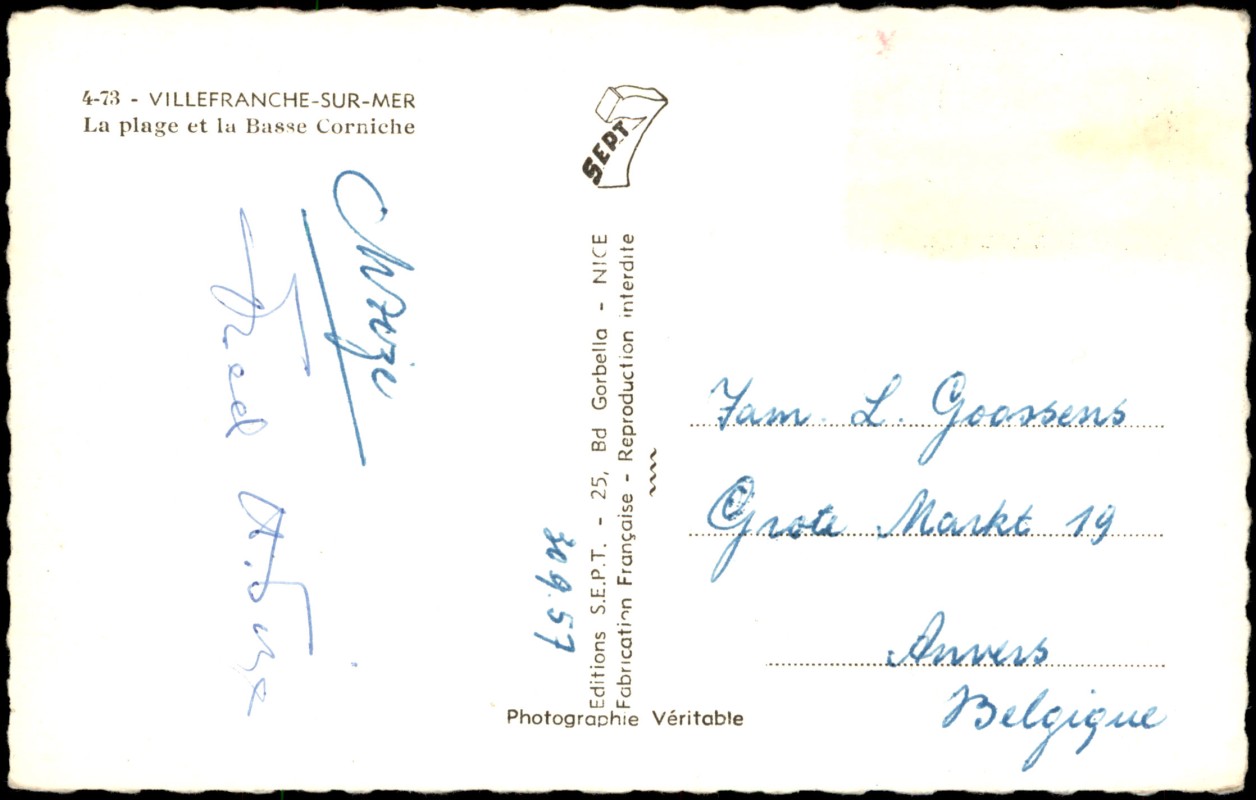 4-73 - VILLEFRANCHE-SUR-MER
La plage et la Basse Corniche
SEPT 7
Editions S.E.P.T. - 25, Bd Gorbella - NICE
Fabrication Française - Reproduction interdite
30.9.57
Photographie Véritable
Fam. L. Goossens
Grote Markt 19
Anvers
Belgique